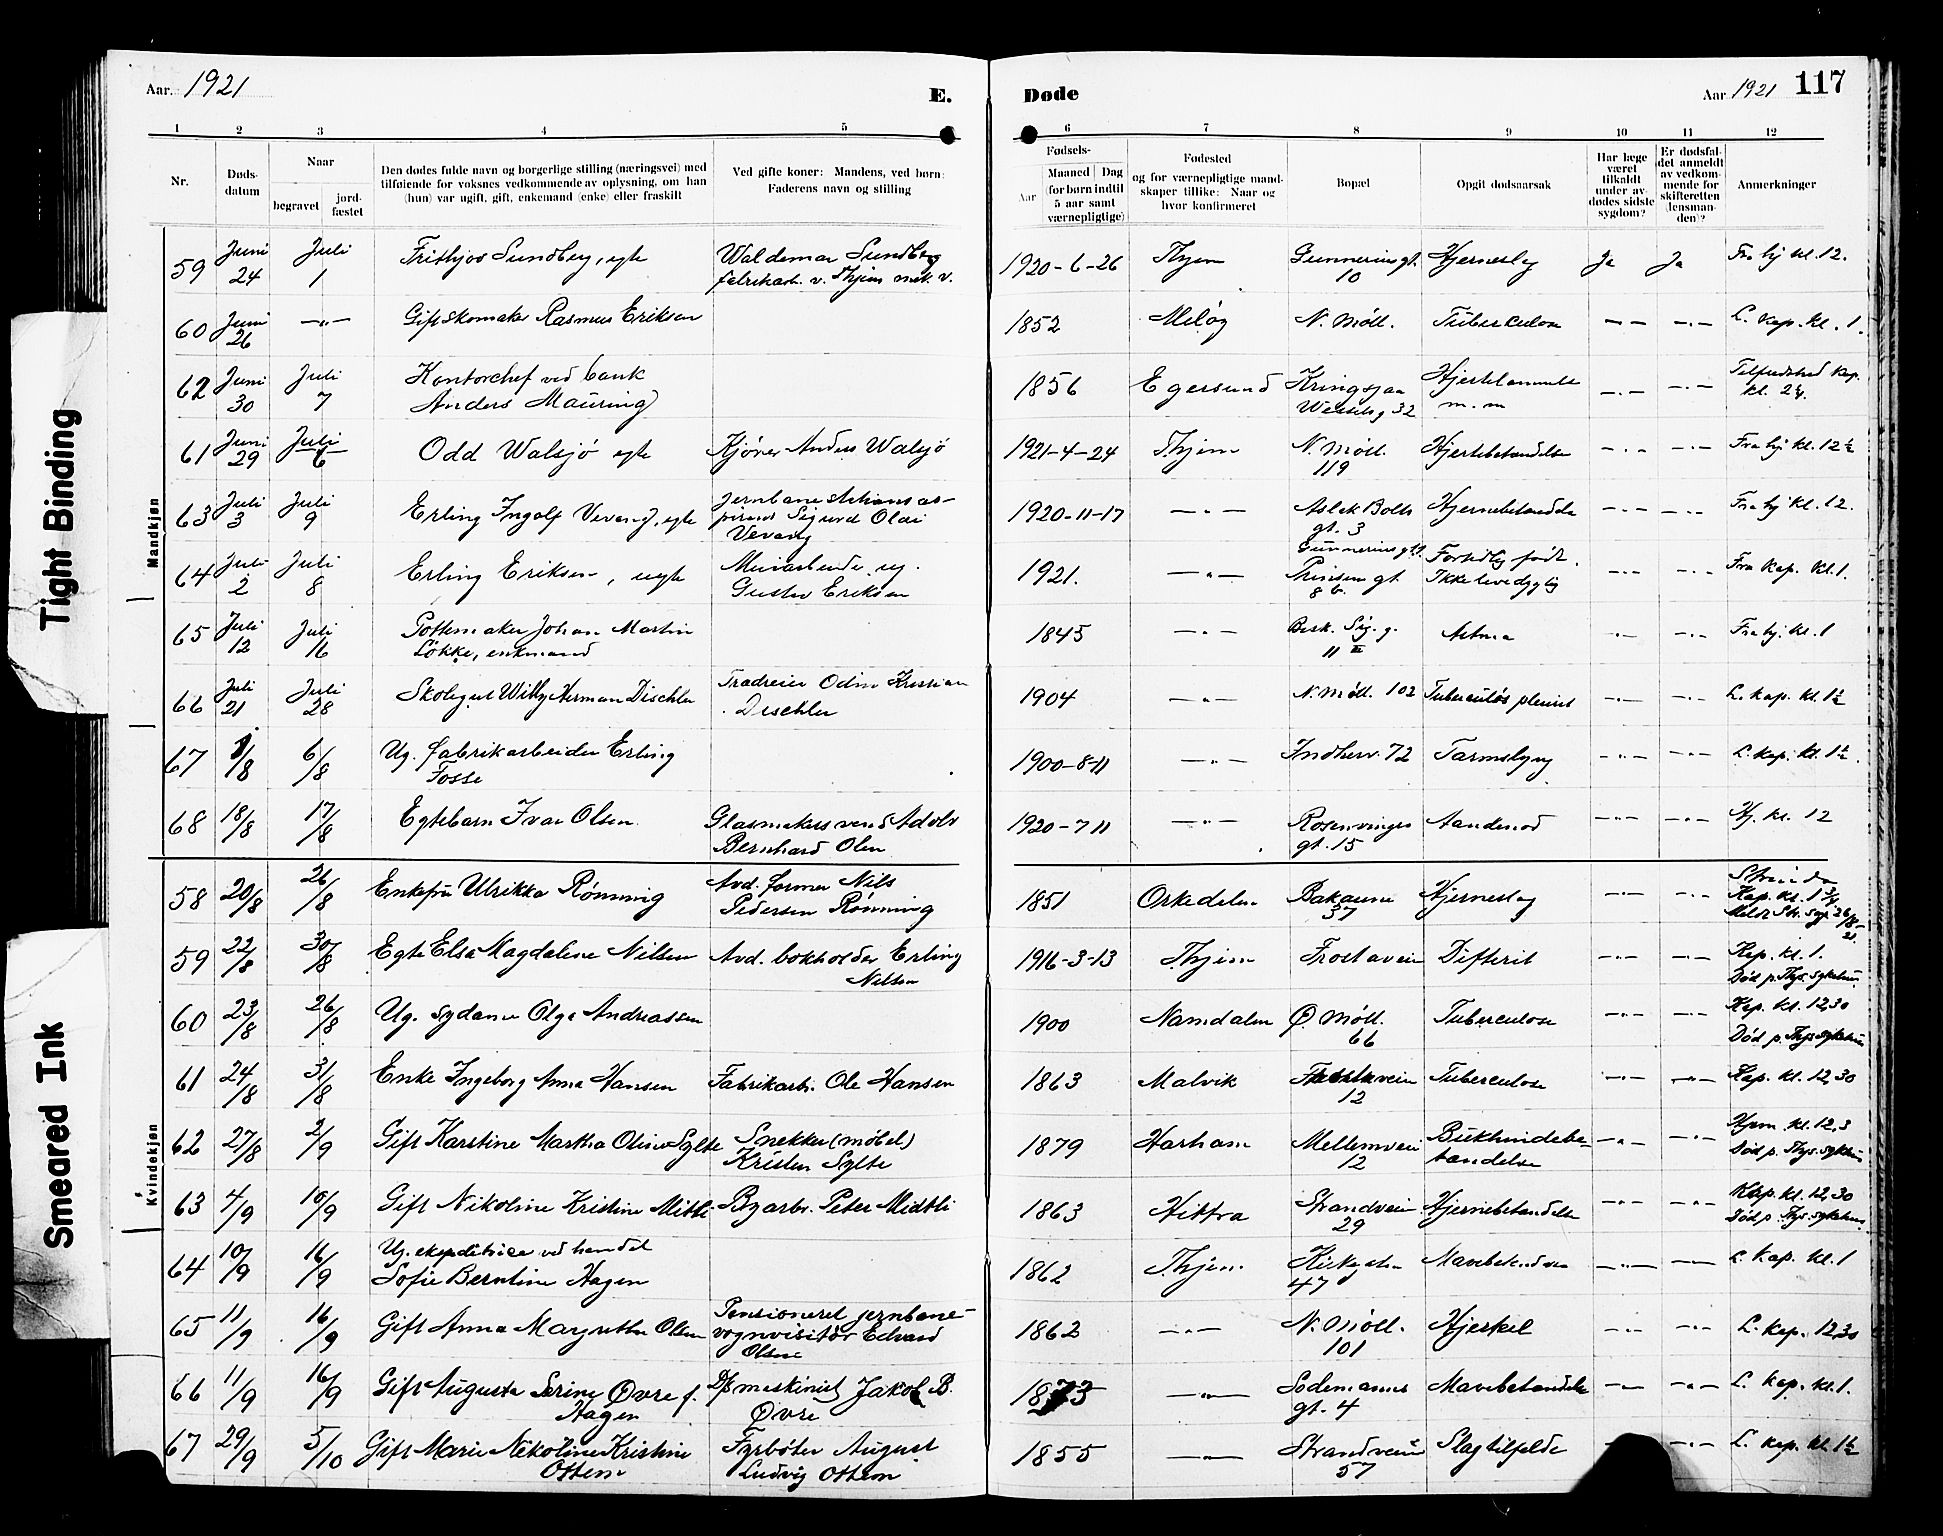 Aar. 1921
E.
Døde
Aar 1921 117
1 2 3 4 5 6 7 8 9 10 11 12
Nr.
Døds-
datum
Naar
begravet
jord-
fæstet
Den dødes fulde navn og borgerlige stilling (næringsvei) med
tilføiende for voksnes vedkommende av oplysning, om han
(hun) var ugift, gift, enkemand (enke) eller fraskilt
Ved gifte koner: Mandens, ved børn:
Faderens navn og stilling
Fødsels-
Aar
Maaned Dag
(for børn indtil
5 aar samt
værnepligtige)
Fødested
og for værnepligtige mand-
skaper tillike: Naar og
hvor konfirmeret
Bopæl
Opgit dødsaarsak
Har læge
været
tilkaldt
under av-
dødes sidste
sygdom?
Er dødsfal-
det anmeldt
av vedkom-
mende for
skifteretten
(lensman-
den)?
Anmerkninger
Tight Binding
Smeared Ink
Mandkjøn
Kvindekjøn
59 Juni 24 Juli 1 Frithjov Sundberg, egte Waldemar Sundberg
fabrikarb. v. Thjems mek. v. 1920-6-26 Thjem Gunnerusgt. 10 Hjerneslag Ja Ja Fra hj kl. 12.
60 Juni 26 —"— Gift skomaker Rasmus Eriksen 1852 N. Møll. Tuberkulose —"— —"— L. Kap. kl. 1.
62 Juni 30 Juli 7 Kontorchef ved bank
Anders Mauring 1856 Egersund Kringsjaa
32 m.m —"— —"— Tilfredshed Kap.
61 Juni 29 Juli 6 Odd Walsjö egte Kjører Anders Walsjö 1921-4-24 Thjem N. Møll. 119 Hjertebetændelse —"— —"— Fra hj kl. 12 ½
63 Juli 3 Juli 9 Erling Ingolf Vevang, egte Jernbanestationsas-
pirant Sigurd Olai
Vevang 1920-11-17 —"— Aslak Bolts
gt. 3 Hjernebetændelse —"— —"— Fra hj kl. 12.
64 Juli 2 Juli 8 Erling Eriksen, uegte Murarbeider ug.
Gustav Eriksen 1921. —"— Prinsensgt.
8 b. Fortidlig født.
Ikke levedygtig —"— —"— Fra Kap. kl. 1.
65 Juli 12 Juli 16 Pottemaker Johan Martin
Løkke, enkemand 1845 —"— 11 Astma —"— —"— Fra hj. kl. 1
66 Juli 21 Juli 28 Skolegut Willy Herman Dischler Odin Kristian
Dischler 1904 —"— N. Møll. 102 Tuberculøs pleurit —"— —"— L. kap. kl. 1½
67 1/8 6/8 Ug. fabrikarbeider Erling
Fosse 1900-8-11 —"— Indherv. 72 Tarmslyng —"— —"— L. kap. kl. 1½.
68 18/8 17/8 Egtebarn Ivar Olsen Glasmakersvend Adolv
Bernhard Olsen 1920-7 11 —"— Rosenvinges
gt. 15 Aandenød —"— —"— Hj. kl. 12
58 20/8 26/8 Enkefru Ulrikka Rønning Avd. former Nils
Pedersen Rønning 1851 Orkedalen Bakaune
37 Hjerneslag —"— —"— Strinda
Kap. kl. 1 ¾
59 22/8 30/8 Egte Elsa Magdalene Nilsen Avd. bokholder Erling
Nilsen 1916-3-13 Thjem Frostaveien Difterit —"— —"— Kap. kl. 1.
Død p. Thjs. sykehus
60 23/8 26/8 Ug. sydame Olga Andreassen 1900 Namdalen Ø. Møll.
66 Tuberculose —"— —"— Kap. kl. 12,30
Død p. Thjs sykehus
61 24/8 31/8 Enke Ingeborg Anna Hansen Fabrikarb. Ole Hansen 1863 Malvik 12 Tuberculose —"— —"— Kap. kl. 12,30
62 27/8 2/9 Gift Karstine Martha Oline Sylte Snekker (møbel)
Kristen Sylte 1879 Harham Mellemveien
12 Bukhindebe-
tændelse —"— —"— Hjem kl. 12,3
Død p. Thjs. sykehus
63 4/9 10/9 Gift Nikoline Kristine Mitli Byarb. Peter Midtli 1863 Hittra Strandveien
29 Hjernebetændelse —"— —"— Kap. kl. 12,30
Død p. Thjs. sykehus
64 10/9 16/9 Ug. ekspeditrice ved handel
Sofie Berntine Hagen 1862 Thjem Kirkegaten
47 Mavebetændelse —"— —"— L. Kap. kl. 1
65 11/9 16/9 Gift Anna Margrethe Olsen Pensioneret jernbane-
vognvisitør Edvard
Olsen 1862 —"— N. Møll.
101 Hjertefeil —"— —"— L. kap. 12,30
66 11/9 16/9 Gift Augusta Serine Øvre f.
Hagen D/s maskinist Jakob B.
Øvre 1873 —"— Sodemanns
gt. 4 Mavebetændelse —"— —"— L. kap. kl. 1.
67 29/9 5/10 Gift Marie Nikoline Kristine
Ottem Fyrbøter August
Ludvig Ottem 1855 —"— Strandveien
57 Slagtilfelde —"— L. kap. kl. 1½